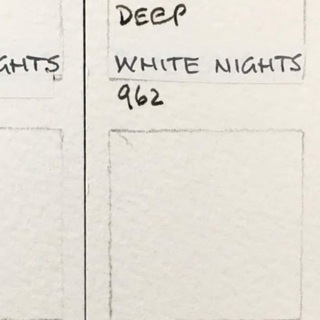 DEEP
GHTS
WHITE NIGHTS
962